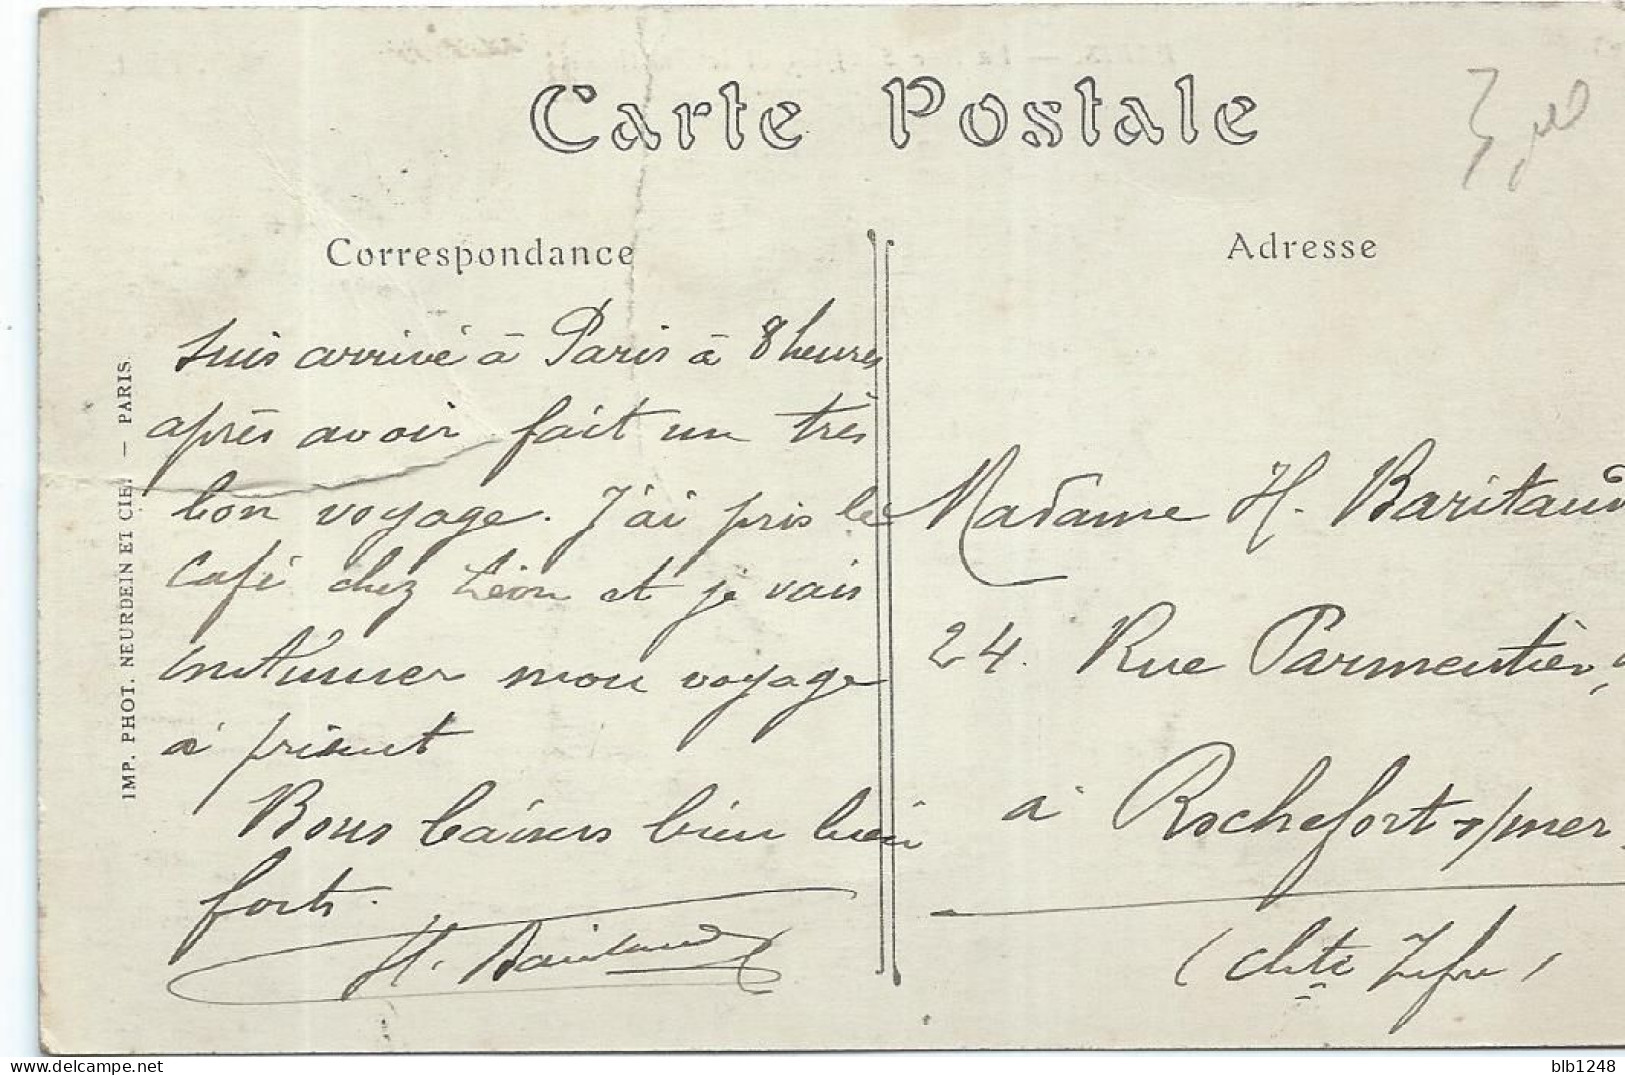 Carte Postale
Correspondance
suis arrivé à Paris à 8 heures
après avoir fait un très
bon voyage. J'ai pris le
café chez Léon et je vais
continuer mon voyage
à présent
Bons baisers bien bien
forts.
H. Baritaud
Adresse
Madame H. Baritaud
24. Rue Parmentier,
à Rochefort s/mer
(chte Infre)
IMP. PHOT. NEURDEIN ET CIE. — PARIS.
blb1248